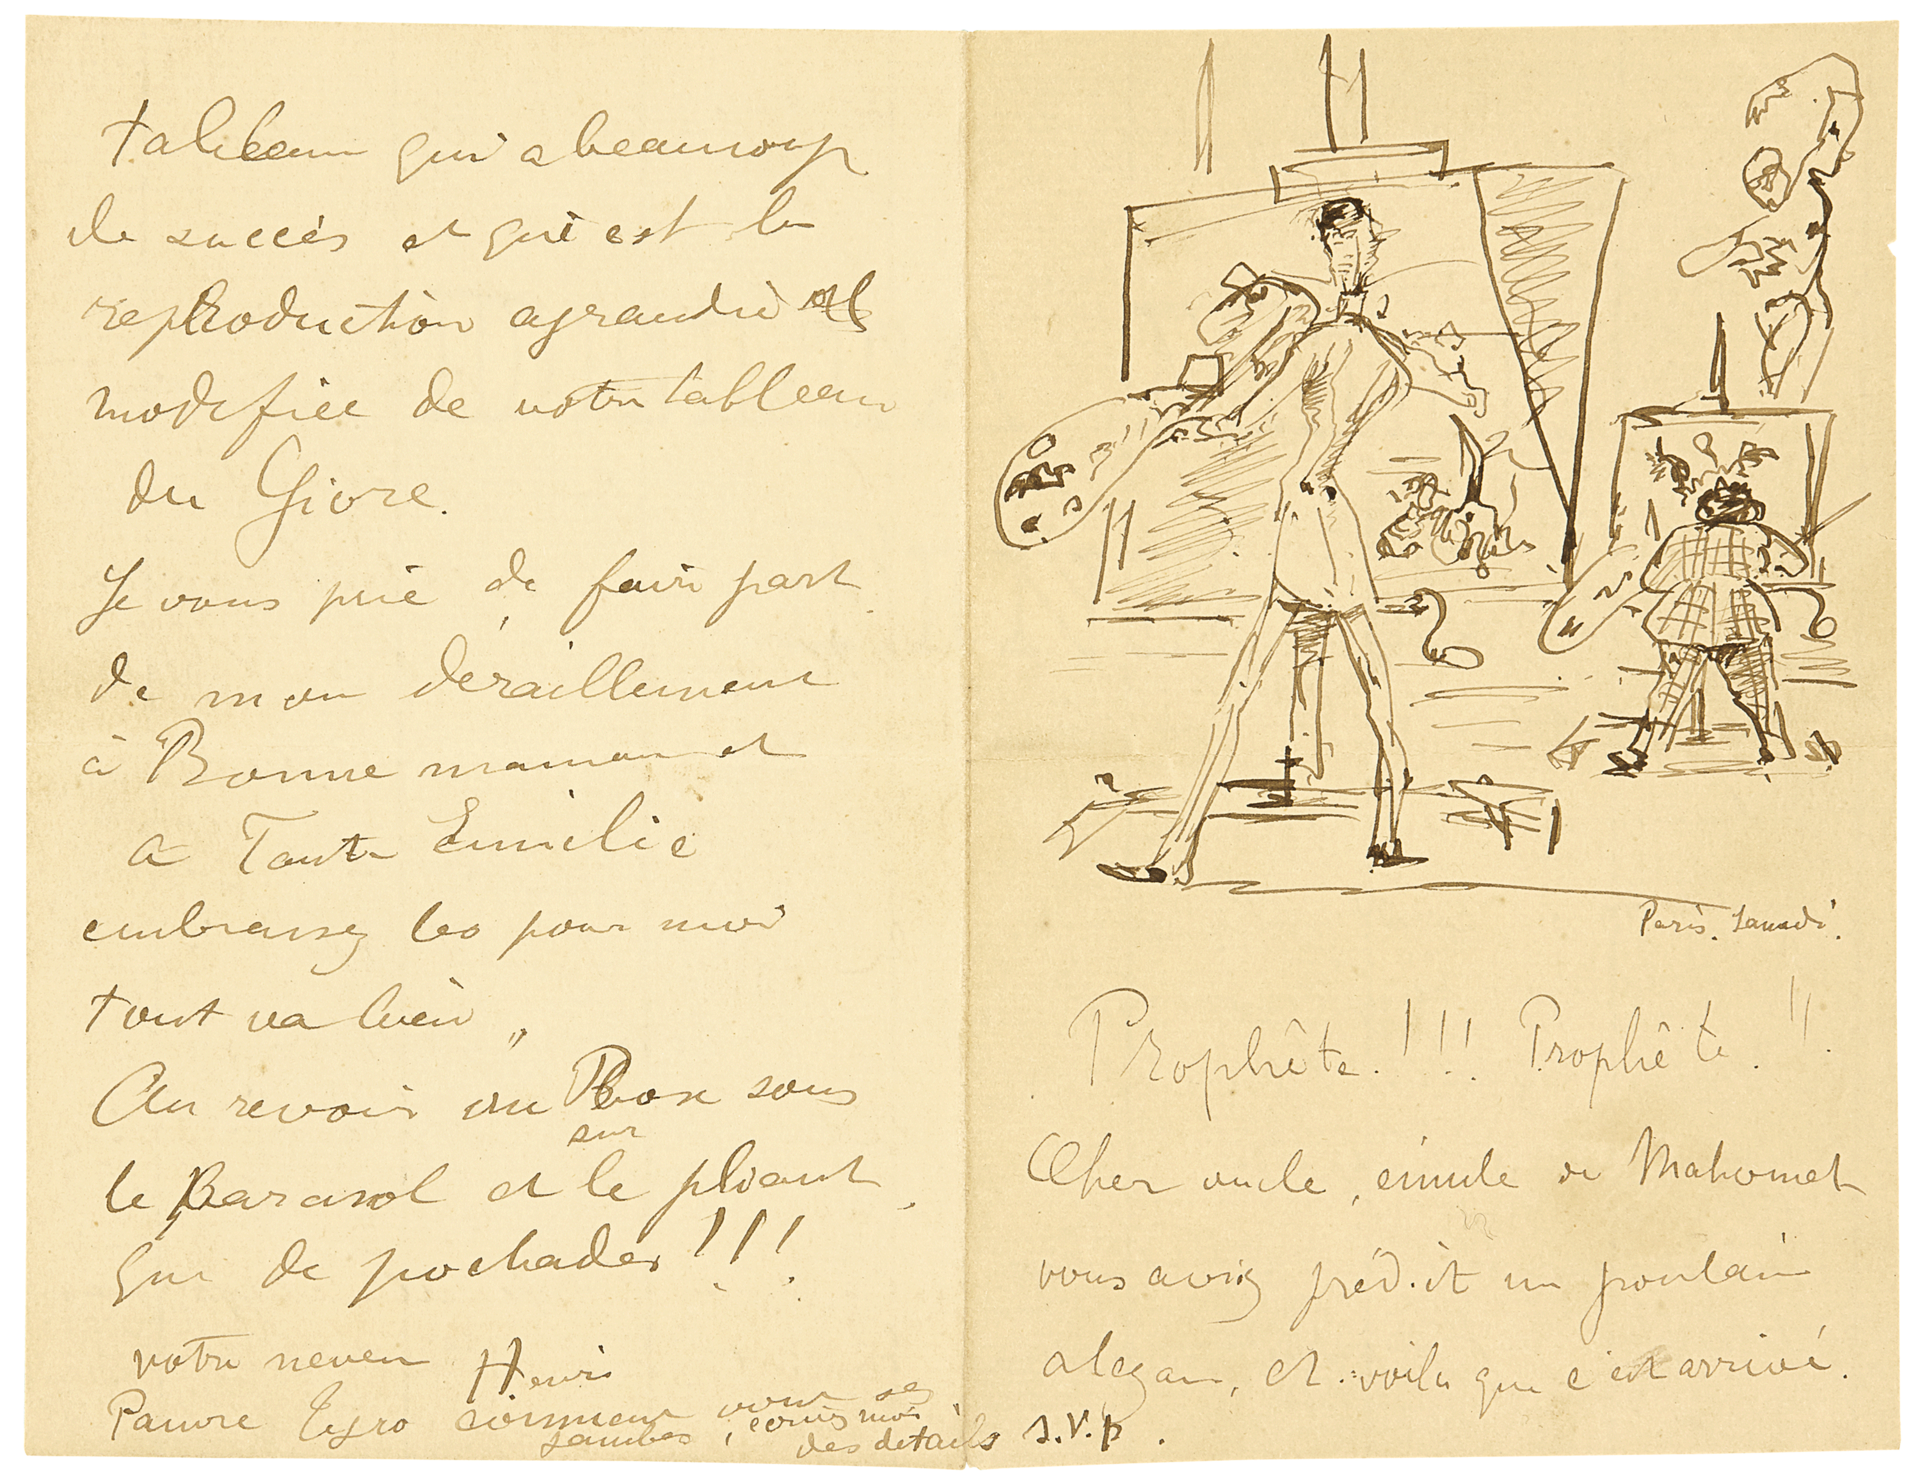 tableau qui a beaucoup
de succès et qui est la
reproduction agrandie et
modifiée de votre tableau
du Givre.
Je vous prie de faire part
de mon déraillement
à Bonne maman et
a Tante Emilie
embrassez les pour moi
tout va bien
Au revoir au Bosc sous
le Parasol et sur le pliant.
que de pochades !!!
votre neveu Henri
Pauvre Tyro comment vont ses
jambes, écris moi
des détails s.V.p.
Paris. Samedi.
Prophète !!! Prophète !!
Cher oncle, émule de Mahomet
vous aviez prédit un poulain
alezan, et voila que c'est arrivé.